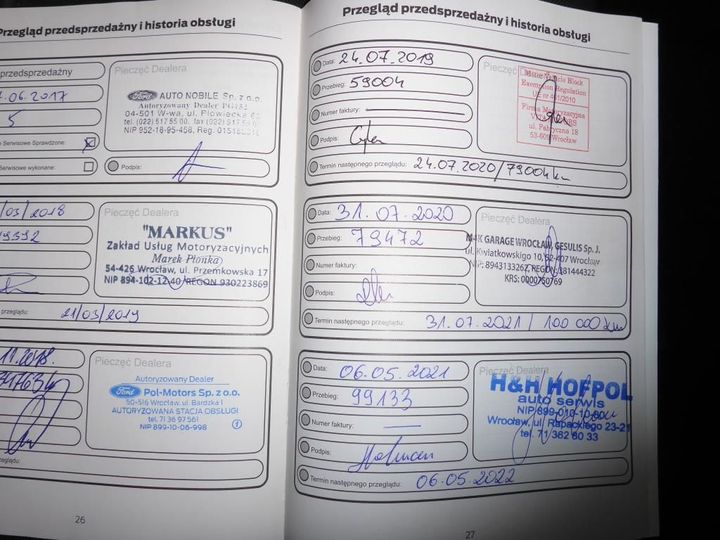 Przegląd przedsprzedażny i historia obsługi
przedsprzedażny
.06.2017
5
Serwisowe Sprawdzone:
Serwisowe wykonane:
Pieczęć Dealera
Ford AUTO NOBILE Sp. z o.o.
Autoryzowany Dealer
04-501 W-wa, ul. Płowiecka
tel. (022) 517 55 00, fax (022) 517 54
NIP 952-18-95-458, Reg.
Podpis:
/03/2018
Pieczęć Dealera
"MARKUS"
Zakład Usług Motoryzacyjnych
Marek Płonka
54-426 Wrocław, ul. Przemkowska 17
NIP 894-102-12-40 REGON 930223869
przeglądu:
21/03/2019
11.2018.
Pieczęć Dealera
Autoryzowany Dealer
Ford Pol-Motors Sp. z o.o.
50-516 Wrocław, ul. Bardzka 1
AUTORYZOWANA STACJA OBSŁUGI
tel. 71 36 97 561
NIP 899-10-06-998
przeglądu:
26
Przegląd przedsprzedażny i historia obsługi
Data: 24.07.2019
Przebieg: 59004
Numer faktury:
Podpis:
Termin następnego przeglądu: 24.07.2020/79004 km
Pieczęć Dealera
Motor Vehicle Block
Exemption Regulation
UE nr 461/2010
Firma Motoryzacyjna
ul. Fabryczna 18
Wrocław
Data: 31.07.2020
Przebieg: 79472
Numer faktury:
Podpis:
Termin następnego przeglądu: 31.07.2021 / 100 000 km
Pieczęć Dealera
GARAGE WROCŁAW, GESULIS Sp. J.
ul. Kwiatkowskiego 10, 52-407 Wrocław
NIP: 8943133262, REGON: 381444322
KRS: 0000750769
Data: 06.05.2021
Przebieg: 99133
Numer faktury:
Podpis:
Termin następnego przeglądu: 06.05.2022
Pieczęć Dealera
H&H HOFPOL
auto serwis
NIP 899-010-10-80
Wrocław, ul. Rapackiego 23-21
tel. 71/362 60 33
27